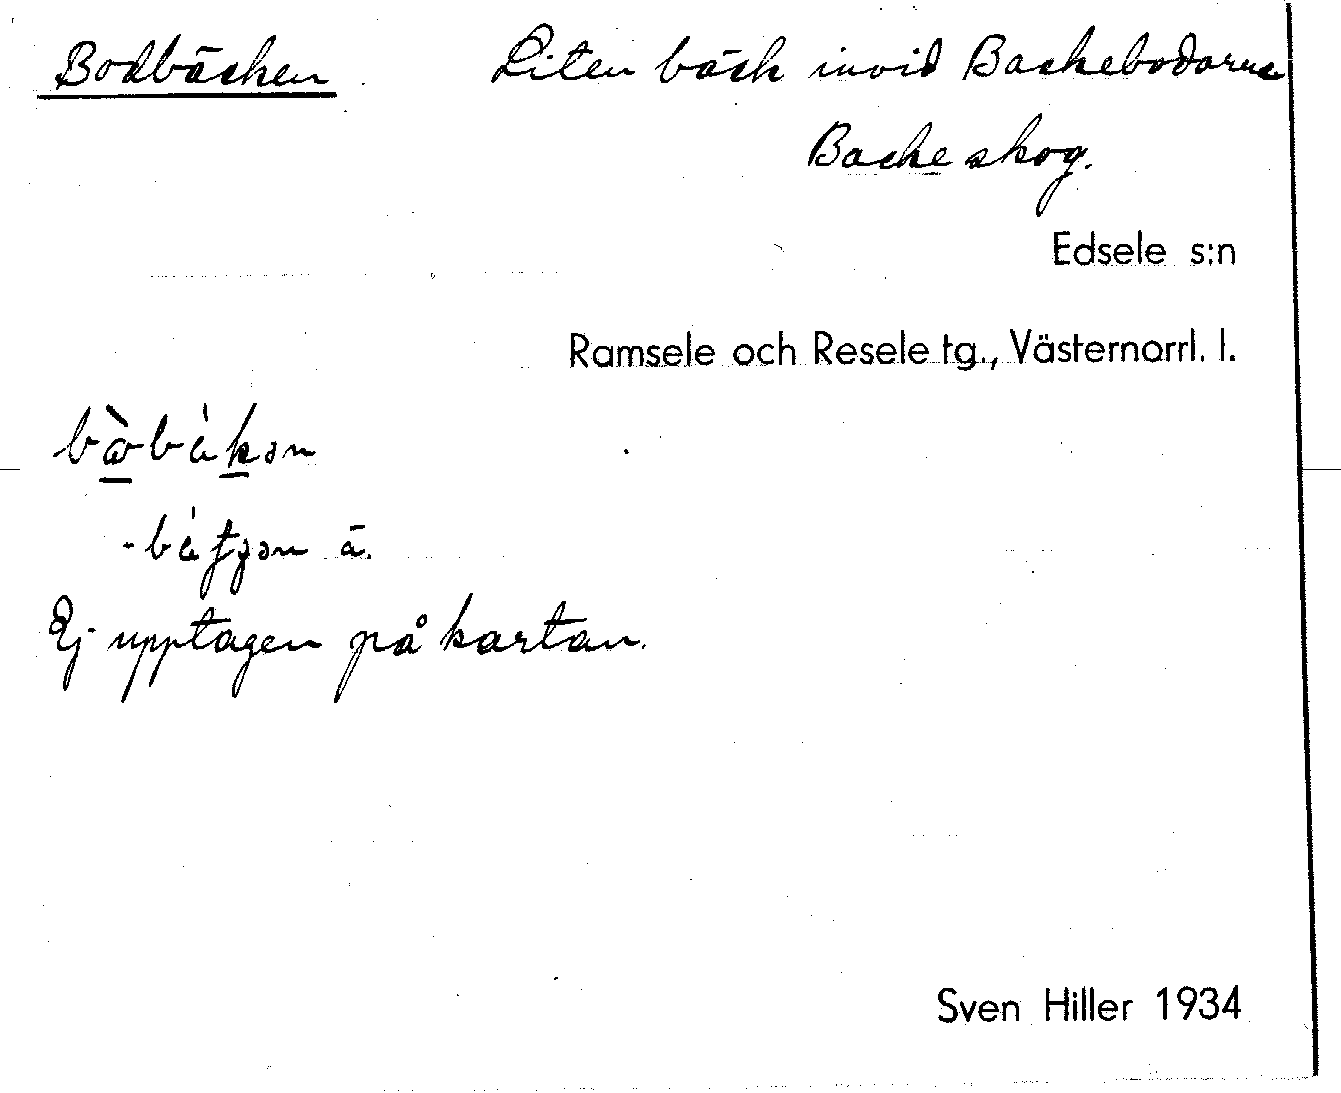 Bodbäcken. Liten bäck invid Backebodarna
Backe skog.
Edsele s:n
Ramsele och Resele tg., Västernorrl. l.
Ej upptagen på kartan.
Sven Hiller 1934